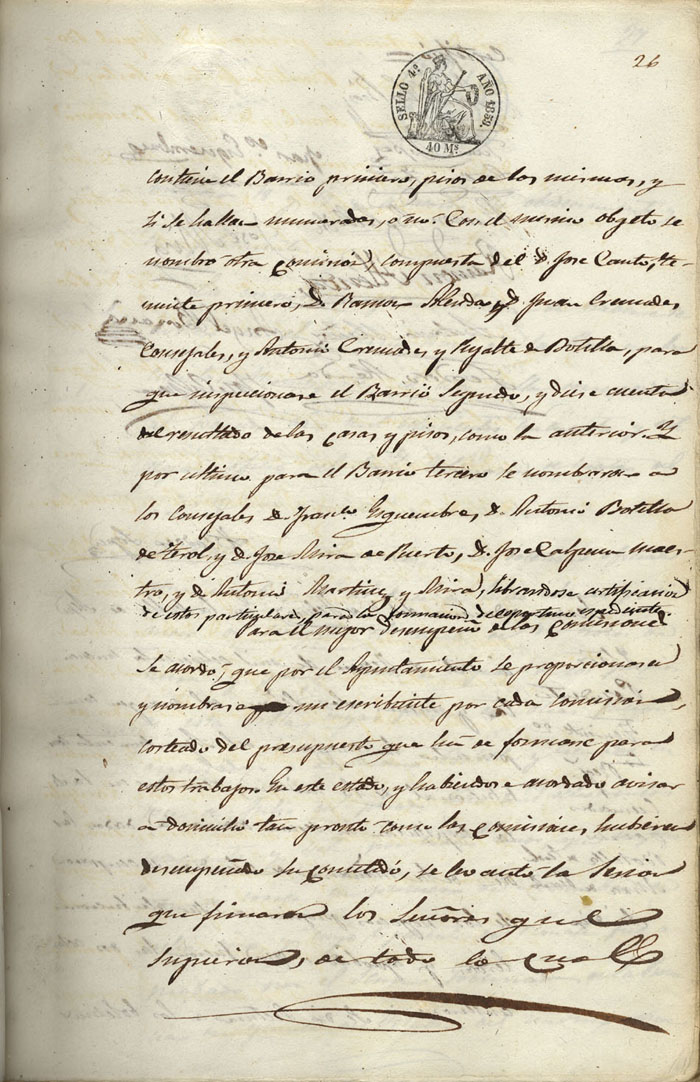 26
SELLO 4º AÑO 1859.
40 Ms.
contiene el Barrio primero, pisos de los mismos, y
si se hallan numeradas, o no. Con el mismo objeto se
nombro otra comision, compuesta del D. Jose Canto, te-
niente primero, D. Ramon Alenda y D. Juan Cremades
Consejales, y Antonio Cremades y de Botella, para
que inspecionase el Barrio Segundo, y diese cuenta
del resultado de las casas y pisos, como la anterior. Y
por ultimo para el Barrio tercero se nombraron a
los Consejales D. Franco. Esquembre, D. Antonio Botella
de Terol, y D. Jose Mira de Puerto, D. Jose Calpena maes-
tro, y D. Antonio Martinez y Mira, librandose certificacion
de estos particulares, para la formacion del oportuno expediente
Para el mejor desempeño de las comisiones
Se acordo, que por el Ayuntamiento se proporcionase
y nombrase un escribiente por cada comision,
costeado del presupuesto que ha de formarse para
estos trabajos. En este estado, y habiendose acordado avisar
a domicilio tan pronto como las comisiones hubieran
desempeñado su cometido, se levanto la Sesion
que firmaron los Señores que
supieron, de todo lo cual